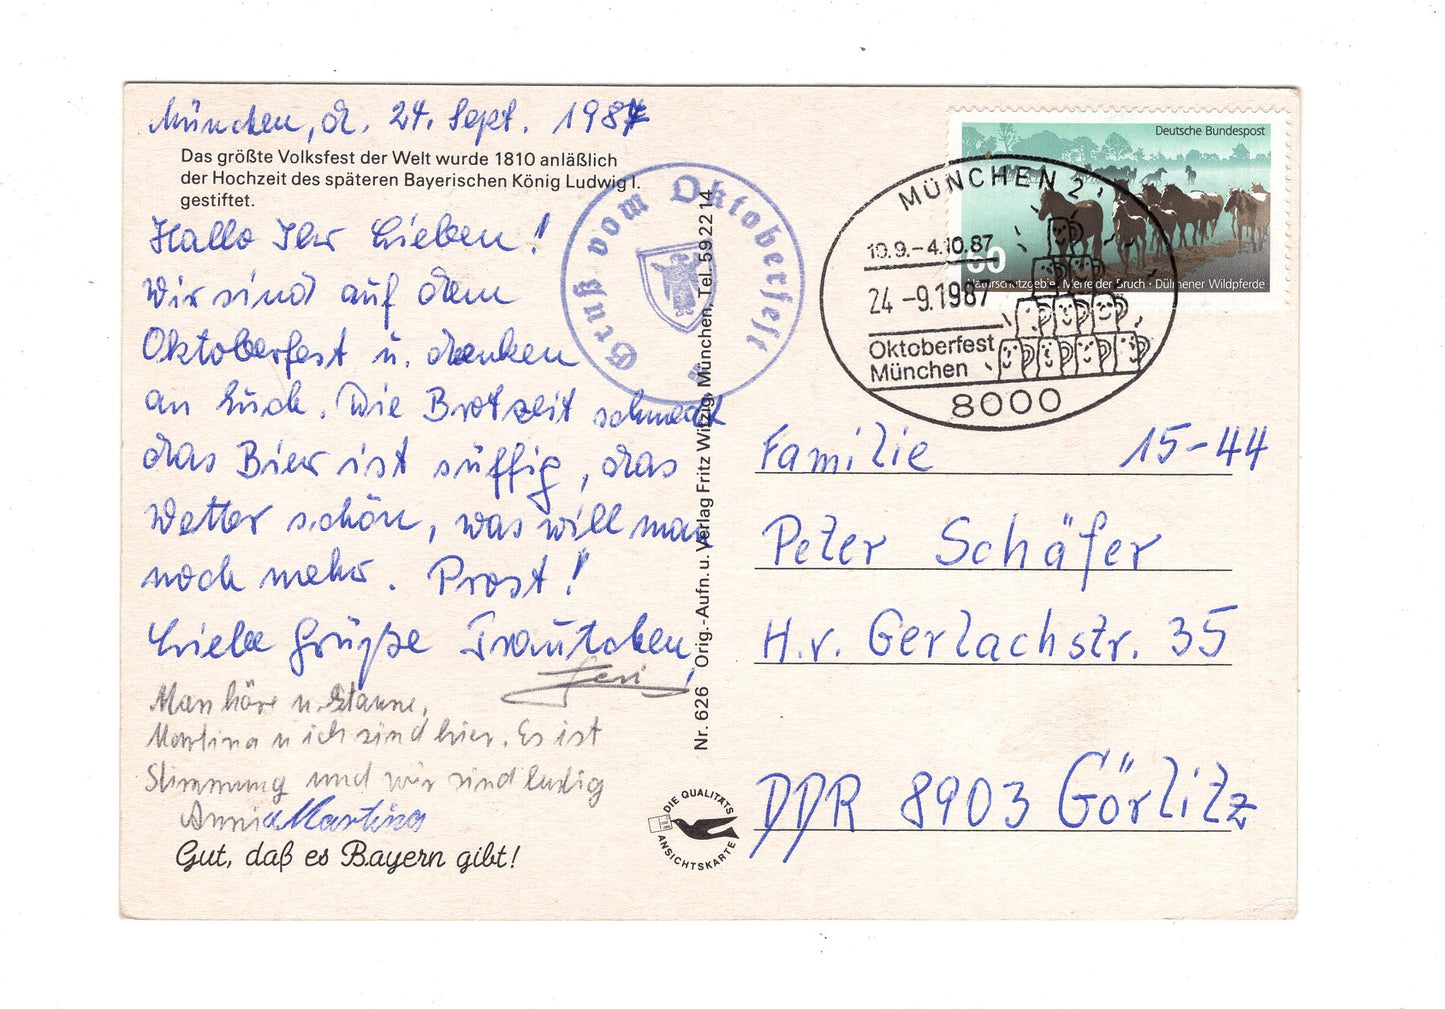 München, d. 24. Sept. 1987
Das größte Volksfest der Welt wurde 1810 anläßlich
der Hochzeit des späteren Bayerischen König Ludwig I.
gestiftet.
Hallo Ihr Lieben!
Wir sind auf dem
Oktoberfest u. denken
an Euch. Die Brotzeit schmeckt
das Bier ist süffig, das
Wetter schön, was will man
noch mehr. Prost!
Liebe Grüße Trautchen,
Man höre u. staune,
Martina u ich sind hier. Es ist
Stimmung und wir sind lustig
Martina
Gut, daß es Bayern gibt!
Gruß vom Oktoberfest
Nr. 626 Orig.-Aufn. u. Verlag Fritz Witzig, München, Tel. 59 22 14
DIE QUALITÄTS
ANSICHTSKARTE
Deutsche Bundespost
60
Naturschutzgebiet Merfelder Bruch · Dülmener Wildpferde
MÜNCHEN 2
19.9.-4.10.87
24.-9.1987
Oktoberfest
München
8000
Familie 15-44
Peter Schäfer
H.v. Gerlachstr. 35
DDR 8903 Görlitz